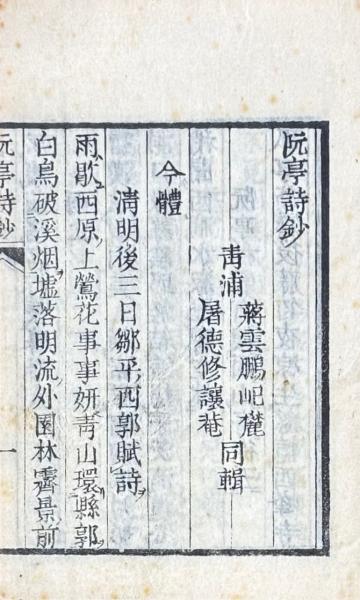 阮亭詩鈔
青浦
蔣雲鵬屺㠠
屠德修讓菴
同輯
今體
清明後三日鄒平西郭賦詩
雨歇西原上鶯花事事妍青山環縣郭
白鳥破溪烟墟落明流外園林霽景前
阮亭詩鈔
一